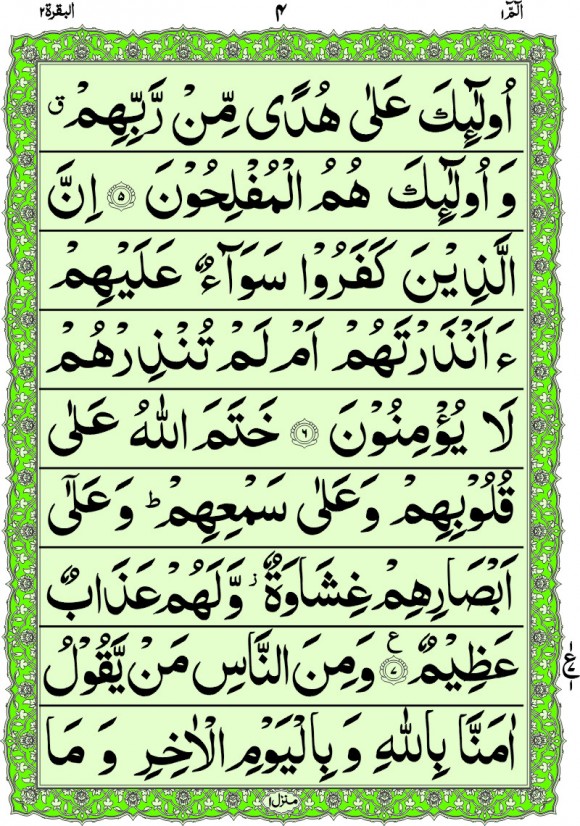 الٓمّٓ ۱
۴
البقرة ۲
اُولٰٓئِكَ عَلٰى هُدًى مِّنْ رَّبِّهِمْ ق
وَ اُولٰٓئِكَ هُمُ الْمُفْلِحُوْنَ ۵ اِنَّ
الَّذِيْنَ كَفَرُوْا سَوَآءٌ عَلَيْهِمْ
ءَاَنْذَرْتَهُمْ اَمْ لَمْ تُنْذِرْهُمْ
لَا يُؤْمِنُوْنَ ۶ خَتَمَ اللّٰهُ عَلٰى
قُلُوْبِهِمْ وَعَلٰى سَمْعِهِمْ ؕ وَعَلٰٓى
اَبْصَارِهِمْ غِشَاوَةٌ ز وَّلَهُمْ عَذَابٌ
عَظِيْمٌ ۷ ع وَمِنَ النَّاسِ مَنْ يَّقُوْلُ
اٰمَنَّا بِاللّٰهِ وَ بِالْيَوْمِ الْاٰخِرِ وَ مَا
ع
منزل ۱